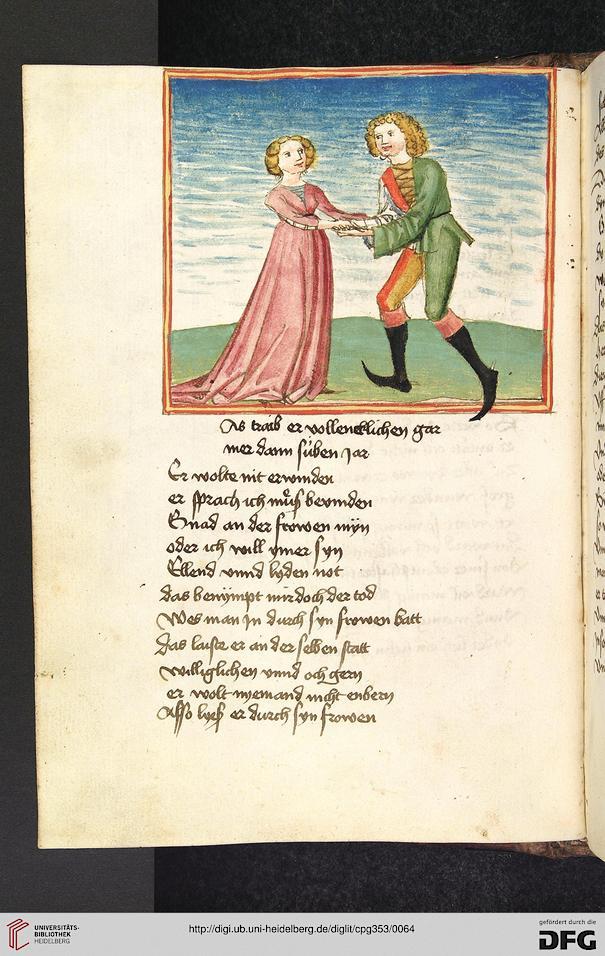 As traib er vollencklichen gar
mer dann süben Jar
Er wolte nit erwinden
er sprach ich müß bevinden
Gnad an der frowen myn
oder ich will ymer syn
Ellend vnnd lyden not
das benympt mir doch der tod
Wes man Jn durch syn frowen batt
das laiste er an der selben statt
williglichen vnnd och gern
er wolt nyemand nicht enbern
Also lyeß er durch syn frowen
UNIVERSITÄTS-
BIBLIOTHEK
HEIDELBERG
http://digi.ub.uni-heidelberg.de/diglit/cpg353/0064
gefördert durch die
DFG